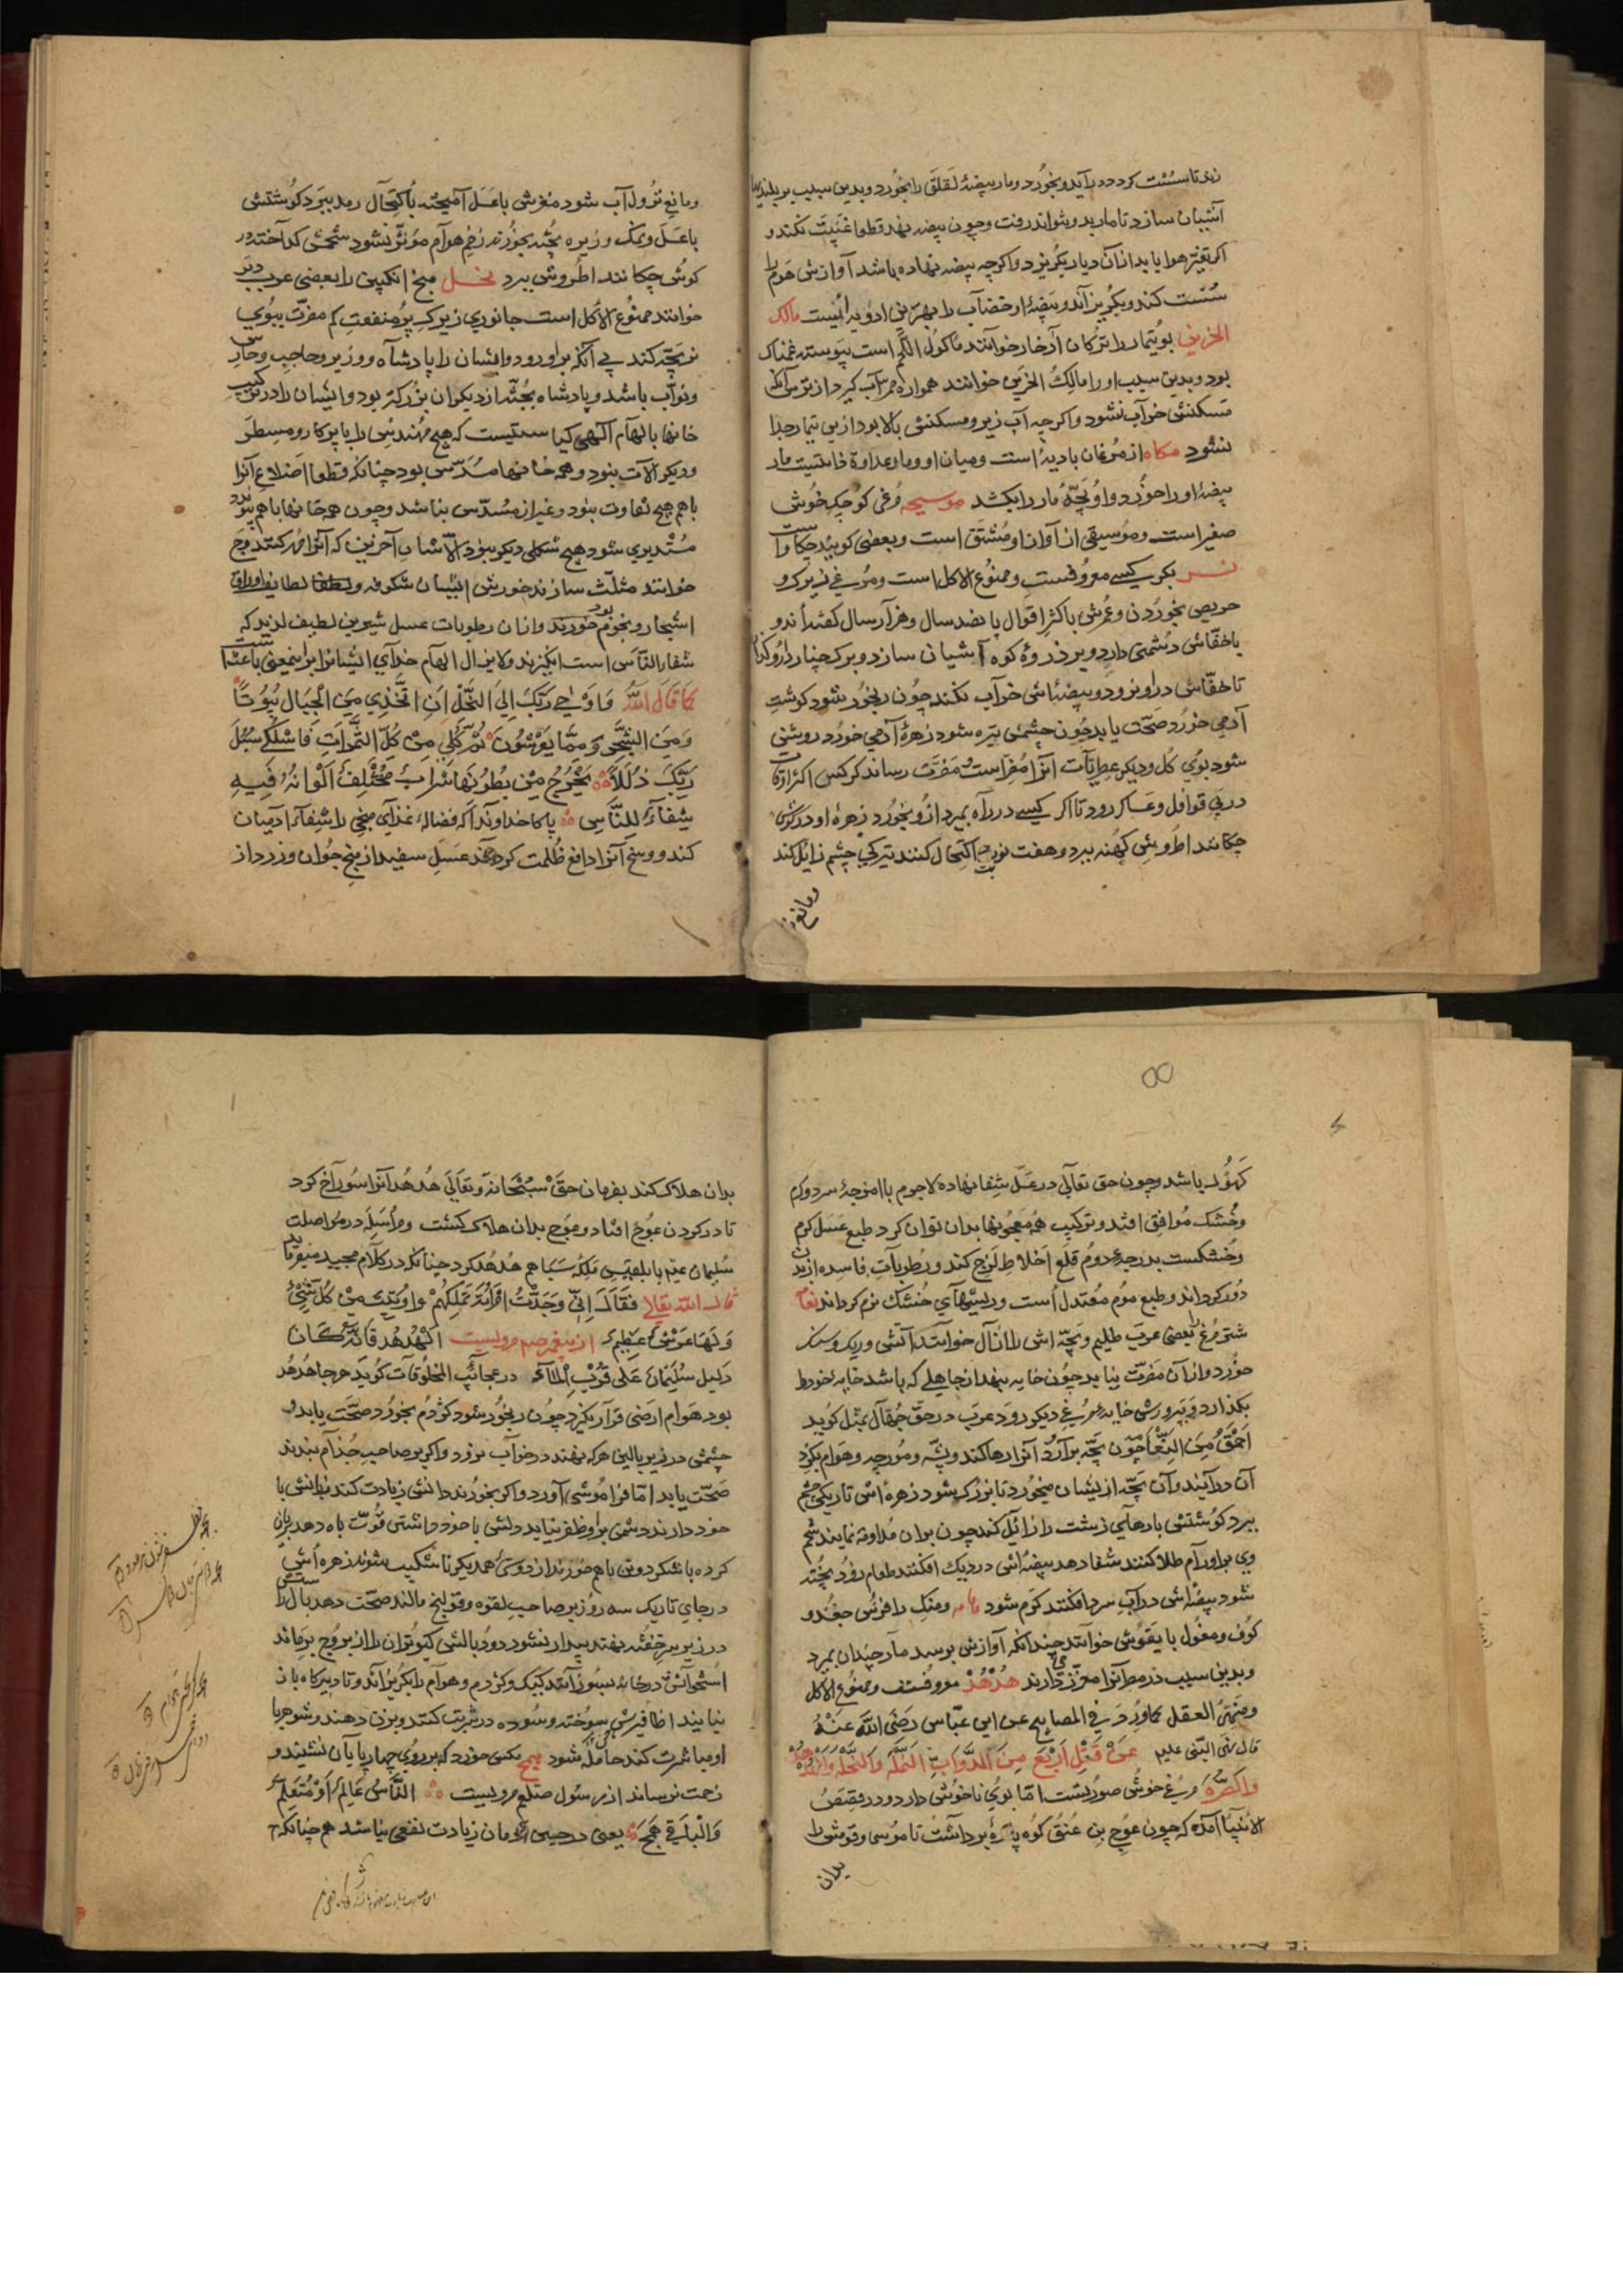 زند تا سست کردد برآید و بخورد و مار بیضهٔ لقلق را بخورد و بدین سبب بر بلندیها
آشیان سازد تا مار بدو نتواند رفت و چون بیضه نهد قطعا غیبت نکند و
اکر تغیر هوا یابد از آن دیار بگریزد و اکر چه بیضه نهاده باشد آوازش هوام را
سست کند و بگریزاند و بیضهٔ او خضاب را بهترین ادویه ایست مالک
الحزین بوتیمار را ترکان آدخار خوانند ماکول اللحم است پیوسته غمناک
بود و بدین سبب او را مالک الحزین خوانند همواره بر سر آب کیرد از ترس آنکه
مسکنش خراب نشود و اکر چه آب زیر و مسکنش بالا بود ازین تیمار جدا
نشود مکاه از مرغان بادیه است و میان او و مار عداوة ذاتیست مار
بیضهٔ او را خورد و او بچهٔ مار را بکشد موسیچه مرغی کوچک خوش
صفیر است و موسیقی از آواز او مشتق است و بعضی کویند چکاو است
نسر بکرکس معروفست و ممنوع الاکل است و مرغی زیرک و
حریص بخوردن و عمرش باکثر اقوال پانصد سال و هزار سال کفته اند و
با خفاش دشمنی دارد و بر ذروهٔ کوه آشیان سازد و برک چنار دارو کند
تا خفاش در او نرود و بیضه اش خراب نکند چون رنجور شود کوشت
آدمی خورد صحت یابد چون چشمش تیره شود زهرهٔ آدمی خورد روشن
شود بوی کل و دیکر عطریات او را مضر است و مضرت رساند کرکس اکثر اوقات
در پی قوافل و عساکر رود تا اکر کسی در راه بمیرد ازو بخورد زهرهٔ او در کوش
چکانند اطروش کهنه ببرد و هفت نوبت اکتحال کنند تیرکی چشم زایل کند
و مانع
و مانع نزول آب شود مغزش با عسل آمیخته باکتحال رمد ببرد کوشتش
با عسل و نمک و زیره پخته بخورند زخم هوام مؤثر نشود شحمش کداخته در
کوش چکانند اطروش ببرد نحل منج انکبین را بعضی عرب دبر
خوانند ممنوع الاکل است جانوری زیرک پر منفعت کم مضرت ببوی
نر بچه کند بی آنکه براو رود و ایشان را پادشاه و وزیر و حاجب و حارس
و نواب باشد و پادشاه بجثه از دیکران بزرکتر بود و ایشان را در ترکیب
خانها بالهام الهی کیاستیست که هیچ مهندس را با پرکار و مسطر
و دیکر آلات نبود و همه خانها مسدس بود چنانکه قطعا اضلاع آنرا
باهم هیچ تفاوت نبود و غیر از مسدس نباشد و چون همه خانها باهم پیوندد
مستدیری شود هیچ شکلی دیکر نبود الا شان آخرین که آنرا مهر کنند و موم
خوانند مثلث سازند خورش ایشان شکوفه و لطایف اوراق
اشجار و نجوم بود خورند و از آن رطوبات عسل شیرین لطیف لذیذ که
شفاء للناس است انکیزند و لایزال الهام خدای ایشانرا براینمعنی باعث است
کما قال الله وَاَوْحٰی رَبُّکَ اِلَی النَّحْلِ اَنِ اتَّخِذِی مِنَ الْجِبَالِ بُیُوتًا
وَمِنَ الشَّجَرِ وَمِمَّا یَعْرِشُونَ ثُمَّ کُلِی مِنْ کُلِّ الثَّمَرَاتِ فَاسْلُکِی سُبُلَ
رَبِّکَ ذُلُلًا یَخْرُجُ مِنْ بُطُونِهَا شَرَابٌ مُخْتَلِفٌ اَلْوَانُهُ فِیهِ
شِفَاءٌ لِلنَّاسِ پاکا خداوندا که فضالهٔ غذای منجی را شفاء آدمیان
کند و وسخ آنرا دافع ظلمت کرداند عسل سفید از منج جوان و زرد از
کهول باشد و چون حق تعالی در عسل شفا نهاده لاجرم با امزجهٔ سرد و کرم
و خشک موافق افتد و ترکیب همه معجونها بدان توان کرد طبع عسل کرم
و خشکست بدرجهٔ دوم قلع اخلاط لزج کند و رطوبات فاسده از بدن
دور کرداند و طبع موم معتدل است و ریشهای خشک نرم کرداند نعام
شتر مرغ بعضی عرب ظلیم و بچه اش را رال خوانند آتش و ریک و سنک
خورد و از آن مضرت نیابد چون خایه بنهد از جاهلی که باشد خایهٔ خود را
بکذارد و بپرورش خایهٔ مرغی دیکر رود عرب در حق جهال بمثل کویند
احمق من النعامة چون بچه برآرد آنرا رها کند و پشه و مورچه و هوام بکرد
آن درآیند و آن بچه از ایشان میخورد تا بزرک شود زهره اش تاریکی چشم
ببرد کوشتش بادهای زشت را زائل کند چون بر آن مداومة نمایند شحم
وی بر اورام طلا کنند شفا دهد بیضه اش در دیک افکنند طعام زود پخته
شود بیضه اش در آب سرد افکنند کرم شود هامه و منک را فرس جغد و
کوف و مغول با یقوش خوانند چندانکه آوازش برسد مار چندان بمیرد
و بدین سبب در مطر آنرا معزز می دارند هُدْهُدْ معروفست و ممنوع الاکل
و منهی القتل کما ورد فی المصابیح عن ابن عباس رضی الله عنه
قال نهی النبی علیم عن قتل اربع من الدواب النملة والنحلة والهدهد
والصرد مرغی خوش صورتست اما بوی ناخوش دارد و در قصص
الانبیا آمده که چون عوج بن عنق کوه پاره برداشت تا موسی و قومش را
بدان
بدان هلاک کند بفرمان حق سبحانه وتعالی هدهد آنرا سوراخ کرد
تا در کردن عوج افتاد و عوج بدان هلاک کشت و مراسله در مواصلت
سلیمان عم با بلقیس ملکهٔ سبا هم هدهد کرد چنانکه در کلام مجید میفرماید
قال الله تعالی فقال اِنِّی وَجَدْتُ امْرَاَةً تَمْلِکُهُمْ وَاُوتِیَتْ مِنْ کُلِّ شَیْءٍ
وَلَهَا عَرْشٌ عَظِیمٌ از پیغمبر صلعم مرویست الهدهد فانه کان
دلیل سلیمان علی قرب الماء در عجائب المخلوقات کوید هر جا هدهد
بود هوام ارضی قرار نکیرد چون رنجور شود کژدم بخورد صحت یابد و
چشمش در زیر بالین هر که نهند در خواب نرود و اکر بر صاحب جذام بندند
صحت یابد اما فراموشی آورد و اکر بخورند دانش زیادت کند زبانش با
خود دارند دشمن براو ظفر نیابد دلش با خود داشتن قوت باه دهد بریان
کرده با شکر دو تن باهم خورند از دوستی همدیکر ناشکیب شوند زهره اش
در جای تاریک سه روز بر صاحب لقوه و قولنج مالند صحت دهد بال راستش
در زیر سر خفته نهند بیدار نشود دود بالش کبوتران را از بروج برماند
استخوانش در خانه بسوزانند کیک و کژدم و هوام را بکریزاند و تا دیرکاه باز
نیایند اظافیرش سوخته و سوده در شربت کنند و بزن دهند و شوهر با
او مباشرت کند حامله شود همج مکس خورد که بر روی چهارپایان نشیند و
زحمت رساند از رسول صلعم مرویست الناس عالم او متعلم
والباقی همج یعنی در جنس آدمیان زیادت نفعی نباشد همچنانکه